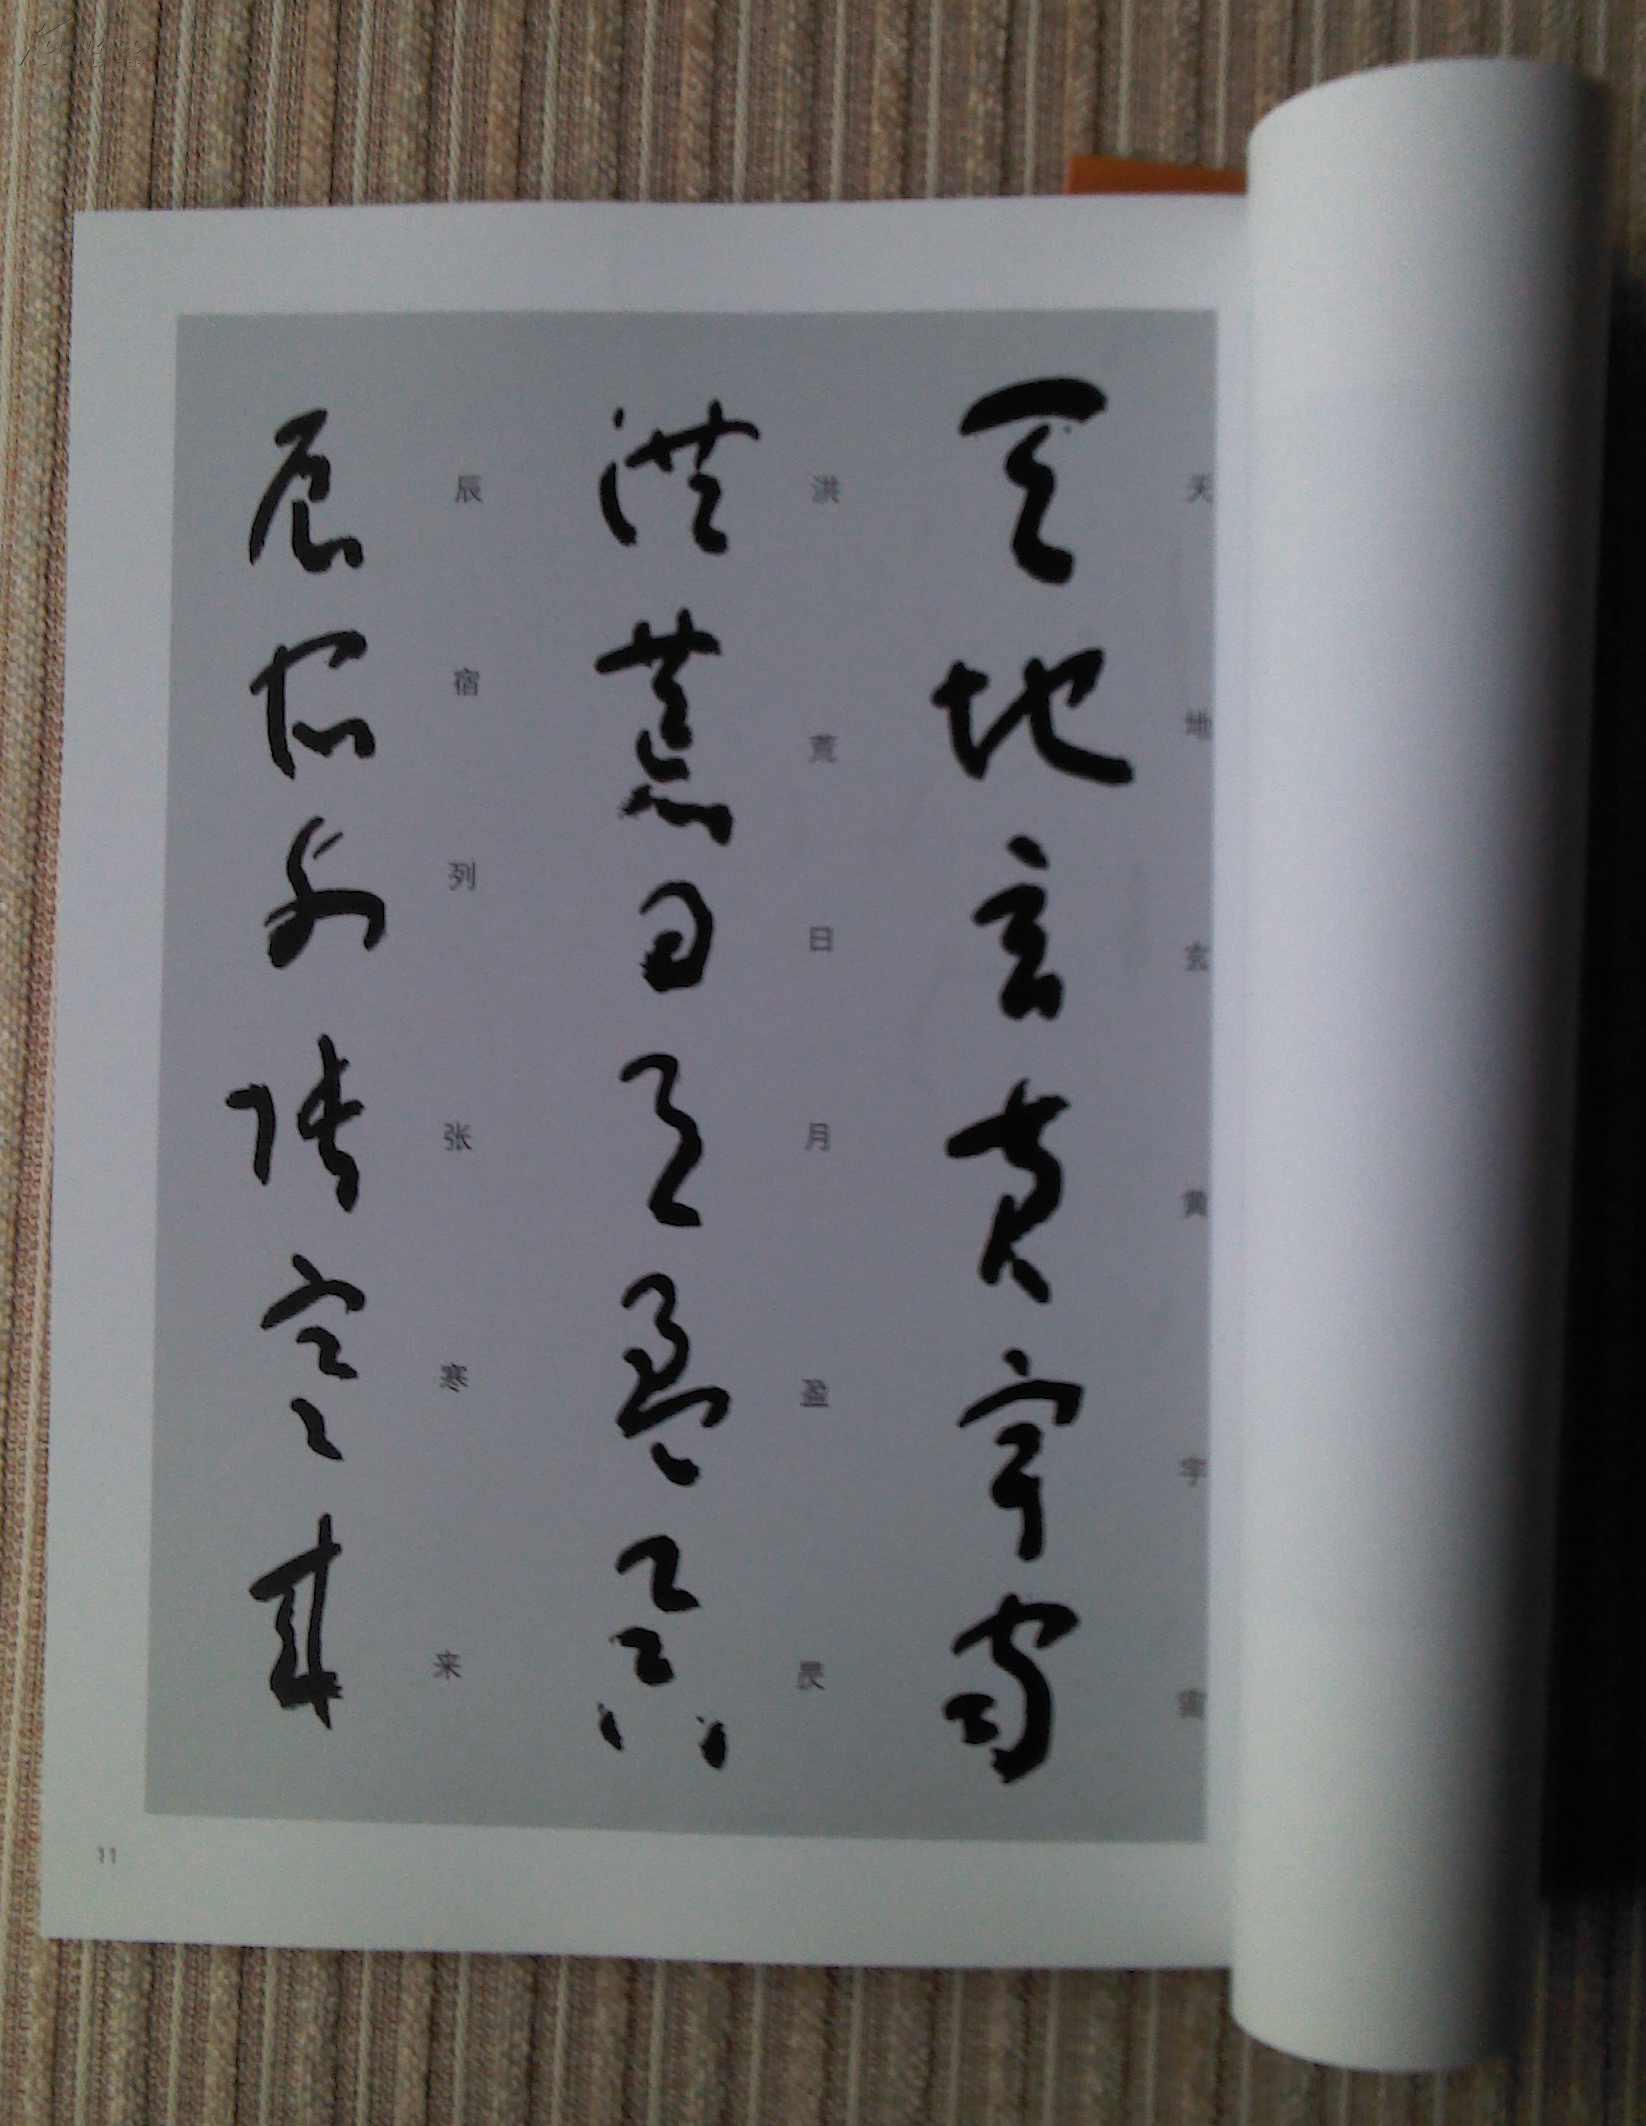 天地玄黄宇宙
天地玄黄宇宙
洪荒日月盈昃
洪荒日月盈昃
辰宿列张寒来
辰宿列张寒来
11